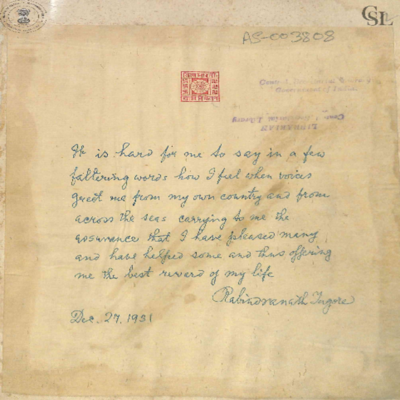 CSL
AS-003808
It is hard for me to say in a few
faltering words how I feel when voices
greet me from my own country and from
across the seas carrying to me the
assurance that I have pleased many
and have helped some and thus offering
me the best reward of my life
Rabindranath Tagore
Dec. 27, 1931